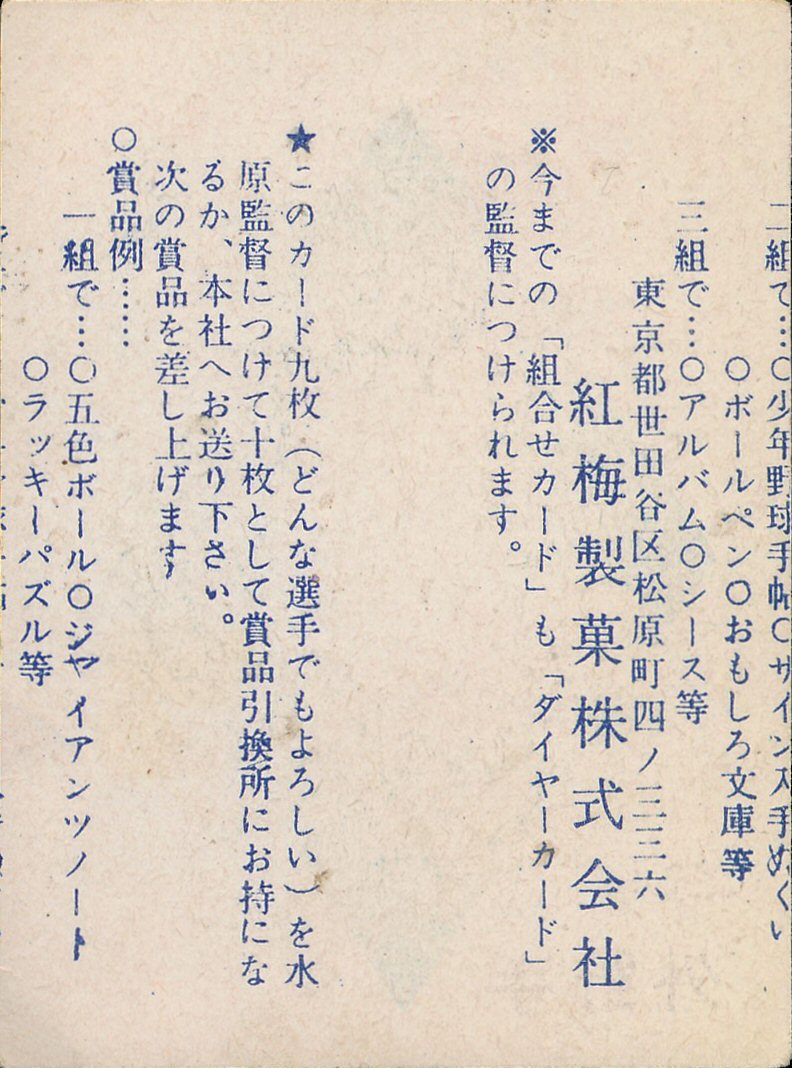 二組で…○少年野球手帖○サイン入手ぬぐい
○ボールペン○おもしろ文庫等
三組で…○アルバム○シース等
東京都世田谷区松原町四ノ三三六
紅梅製菓株式会社
※今までの「組合せカード」も「ダイヤーカード」
の監督につけられます。
★このカード九枚(どんな選手でもよろしい)を水
原監督につけて十枚として賞品引換所にお持にな
るか、本社へお送り下さい。
次の賞品を差し上げます
○賞品例……
一組で…○五色ボール○ジャイアンツノート
○ラッキーパズル等